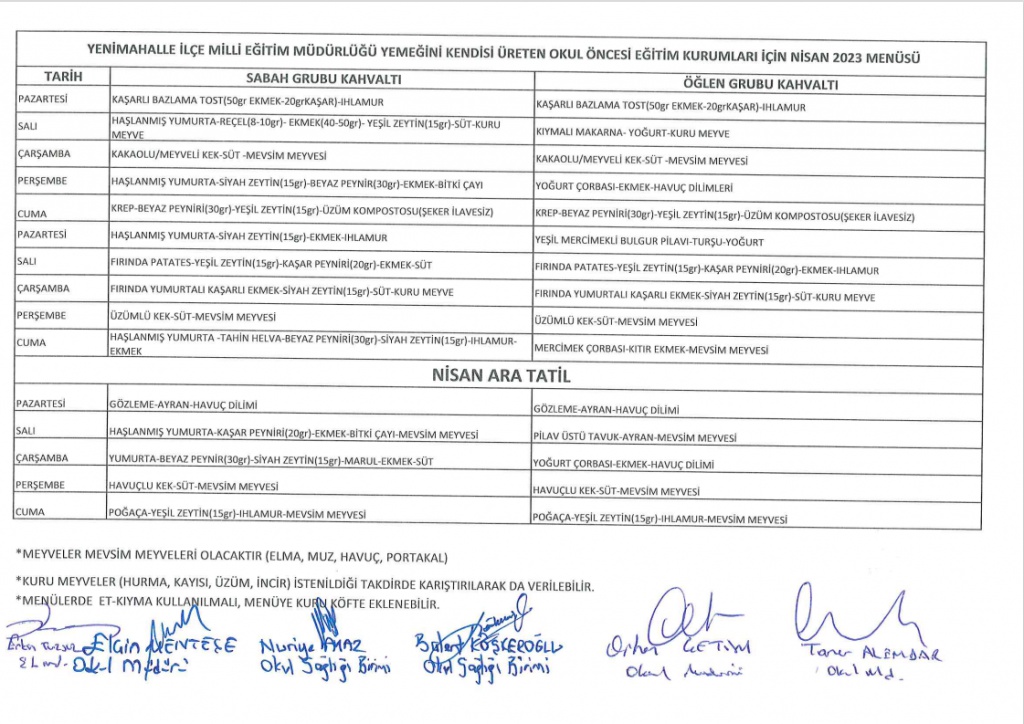 YENİMAHALLE İLÇE MİLLİ EĞİTİM MÜDÜRLÜĞÜ YEMEĞİNİ KENDİSİ ÜRETEN OKUL ÖNCESİ EĞİTİM KURUMLARI İÇİN NİSAN 2023 MENÜSÜ
TARİH SABAH GRUBU KAHVALTI ÖĞLEN GRUBU KAHVALTI
PAZARTESİ KAŞARLI BAZLAMA TOST(50gr EKMEK-20grKAŞAR)-IHLAMUR KAŞARLI BAZLAMA TOST(50gr EKMEK-20grKAŞAR)-IHLAMUR
SALI HAŞLANMIŞ YUMURTA-REÇEL(8-10gr)- EKMEK(40-50gr)- YEŞİL ZEYTİN(15gr)-SÜT-KURU
MEYVE KIYMALI MAKARNA- YOĞURT-KURU MEYVE
ÇARŞAMBA KAKAOLU/MEYVELİ KEK-SÜT -MEVSİM MEYVESİ KAKAOLU/MEYVELİ KEK-SÜT -MEVSİM MEYVESİ
PERŞEMBE HAŞLANMIŞ YUMURTA-SİYAH ZEYTİN(15gr)-BEYAZ PEYNİR(30gr)-EKMEK-BİTKİ ÇAYI YOĞURT ÇORBASI-EKMEK-HAVUÇ DİLİMLERİ
CUMA KREP-BEYAZ PEYNİRİ(30gr)-YEŞİL ZEYTİN(15gr)-ÜZÜM KOMPOSTOSU(ŞEKER İLAVESİZ) KREP-BEYAZ PEYNİRİ(30gr)-YEŞİL ZEYTİN(15gr)-ÜZÜM KOMPOSTOSU(ŞEKER İLAVESİZ)
PAZARTESİ HAŞLANMIŞ YUMURTA-SİYAH ZEYTİN(15gr)-EKMEK-IHLAMUR YEŞİL MERCİMEKLİ BULGUR PİLAVI-TURŞU-YOĞURT
SALI FIRINDA PATATES-YEŞİL ZEYTİN(15gr)-KAŞAR PEYNİRİ(20gr)-EKMEK-SÜT FIRINDA PATATES-YEŞİL ZEYTİN(15gr)-KAŞAR PEYNİRİ(20gr)-EKMEK-IHLAMUR
ÇARŞAMBA FIRINDA YUMURTALI KAŞARLI EKMEK-SİYAH ZEYTİN(15gr)-SÜT-KURU MEYVE FIRINDA YUMURTALI KAŞARLI EKMEK-SİYAH ZEYTİN(15gr)-SÜT-KURU MEYVE
PERŞEMBE ÜZÜMLÜ KEK-SÜT-MEVSİM MEYVESİ ÜZÜMLÜ KEK-SÜT-MEVSİM MEYVESİ
CUMA HAŞLANMIŞ YUMURTA -TAHİN HELVA-BEYAZ PEYNİRİ(30gr)-SİYAH ZEYTİN(15gr)-IHLAMUR-
EKMEK MERCİMEK ÇORBASI-KITIR EKMEK-MEVSİM MEYVESİ
NİSAN ARA TATİL
PAZARTESİ GÖZLEME-AYRAN-HAVUÇ DİLİMİ GÖZLEME-AYRAN-HAVUÇ DİLİMİ
SALI HAŞLANMIŞ YUMURTA-KAŞAR PEYNİRİ(20gr)-EKMEK-BİTKİ ÇAYI-MEVSİM MEYVESİ PİLAV ÜSTÜ TAVUK-AYRAN-MEVSİM MEYVESİ
ÇARŞAMBA YUMURTA-BEYAZ PEYNİR(30gr)-SİYAH ZEYTİN(15gr)-MARUL-EKMEK-SÜT YOĞURT ÇORBASI-EKMEK-HAVUÇ DİLİMİ
PERŞEMBE HAVUÇLU KEK-SÜT-MEVSİM MEYVESİ HAVUÇLU KEK-SÜT-MEVSİM MEYVESİ
CUMA POĞAÇA-YEŞİL ZEYTİN(15gr)-IHLAMUR-MEVSİM MEYVESİ POĞAÇA-YEŞİL ZEYTİN(15gr)-IHLAMUR-MEVSİM MEYVESİ
*MEYVELER MEVSİM MEYVELERİ OLACAKTIR (ELMA, MUZ, HAVUÇ, PORTAKAL)
*KURU MEYVELER (HURMA, KAYISI, ÜZÜM, İNCİR) İSTENİLDİĞİ TAKDİRDE KARIŞTIRILARAK DA VERİLEBİLİR.
*MENÜLERDE ET-KIYMA KULLANILMALI, MENÜYE KURU KÖFTE EKLENEBİLİR.
Elgin MENTEŞE Nuriye Bülent KÖŞKEROĞLU Orhan ÇETİN Taner ALEMDAR
Okul Müdürü Okul Sağlığı Birimi Okul Sağlığı Birimi Okul Md.